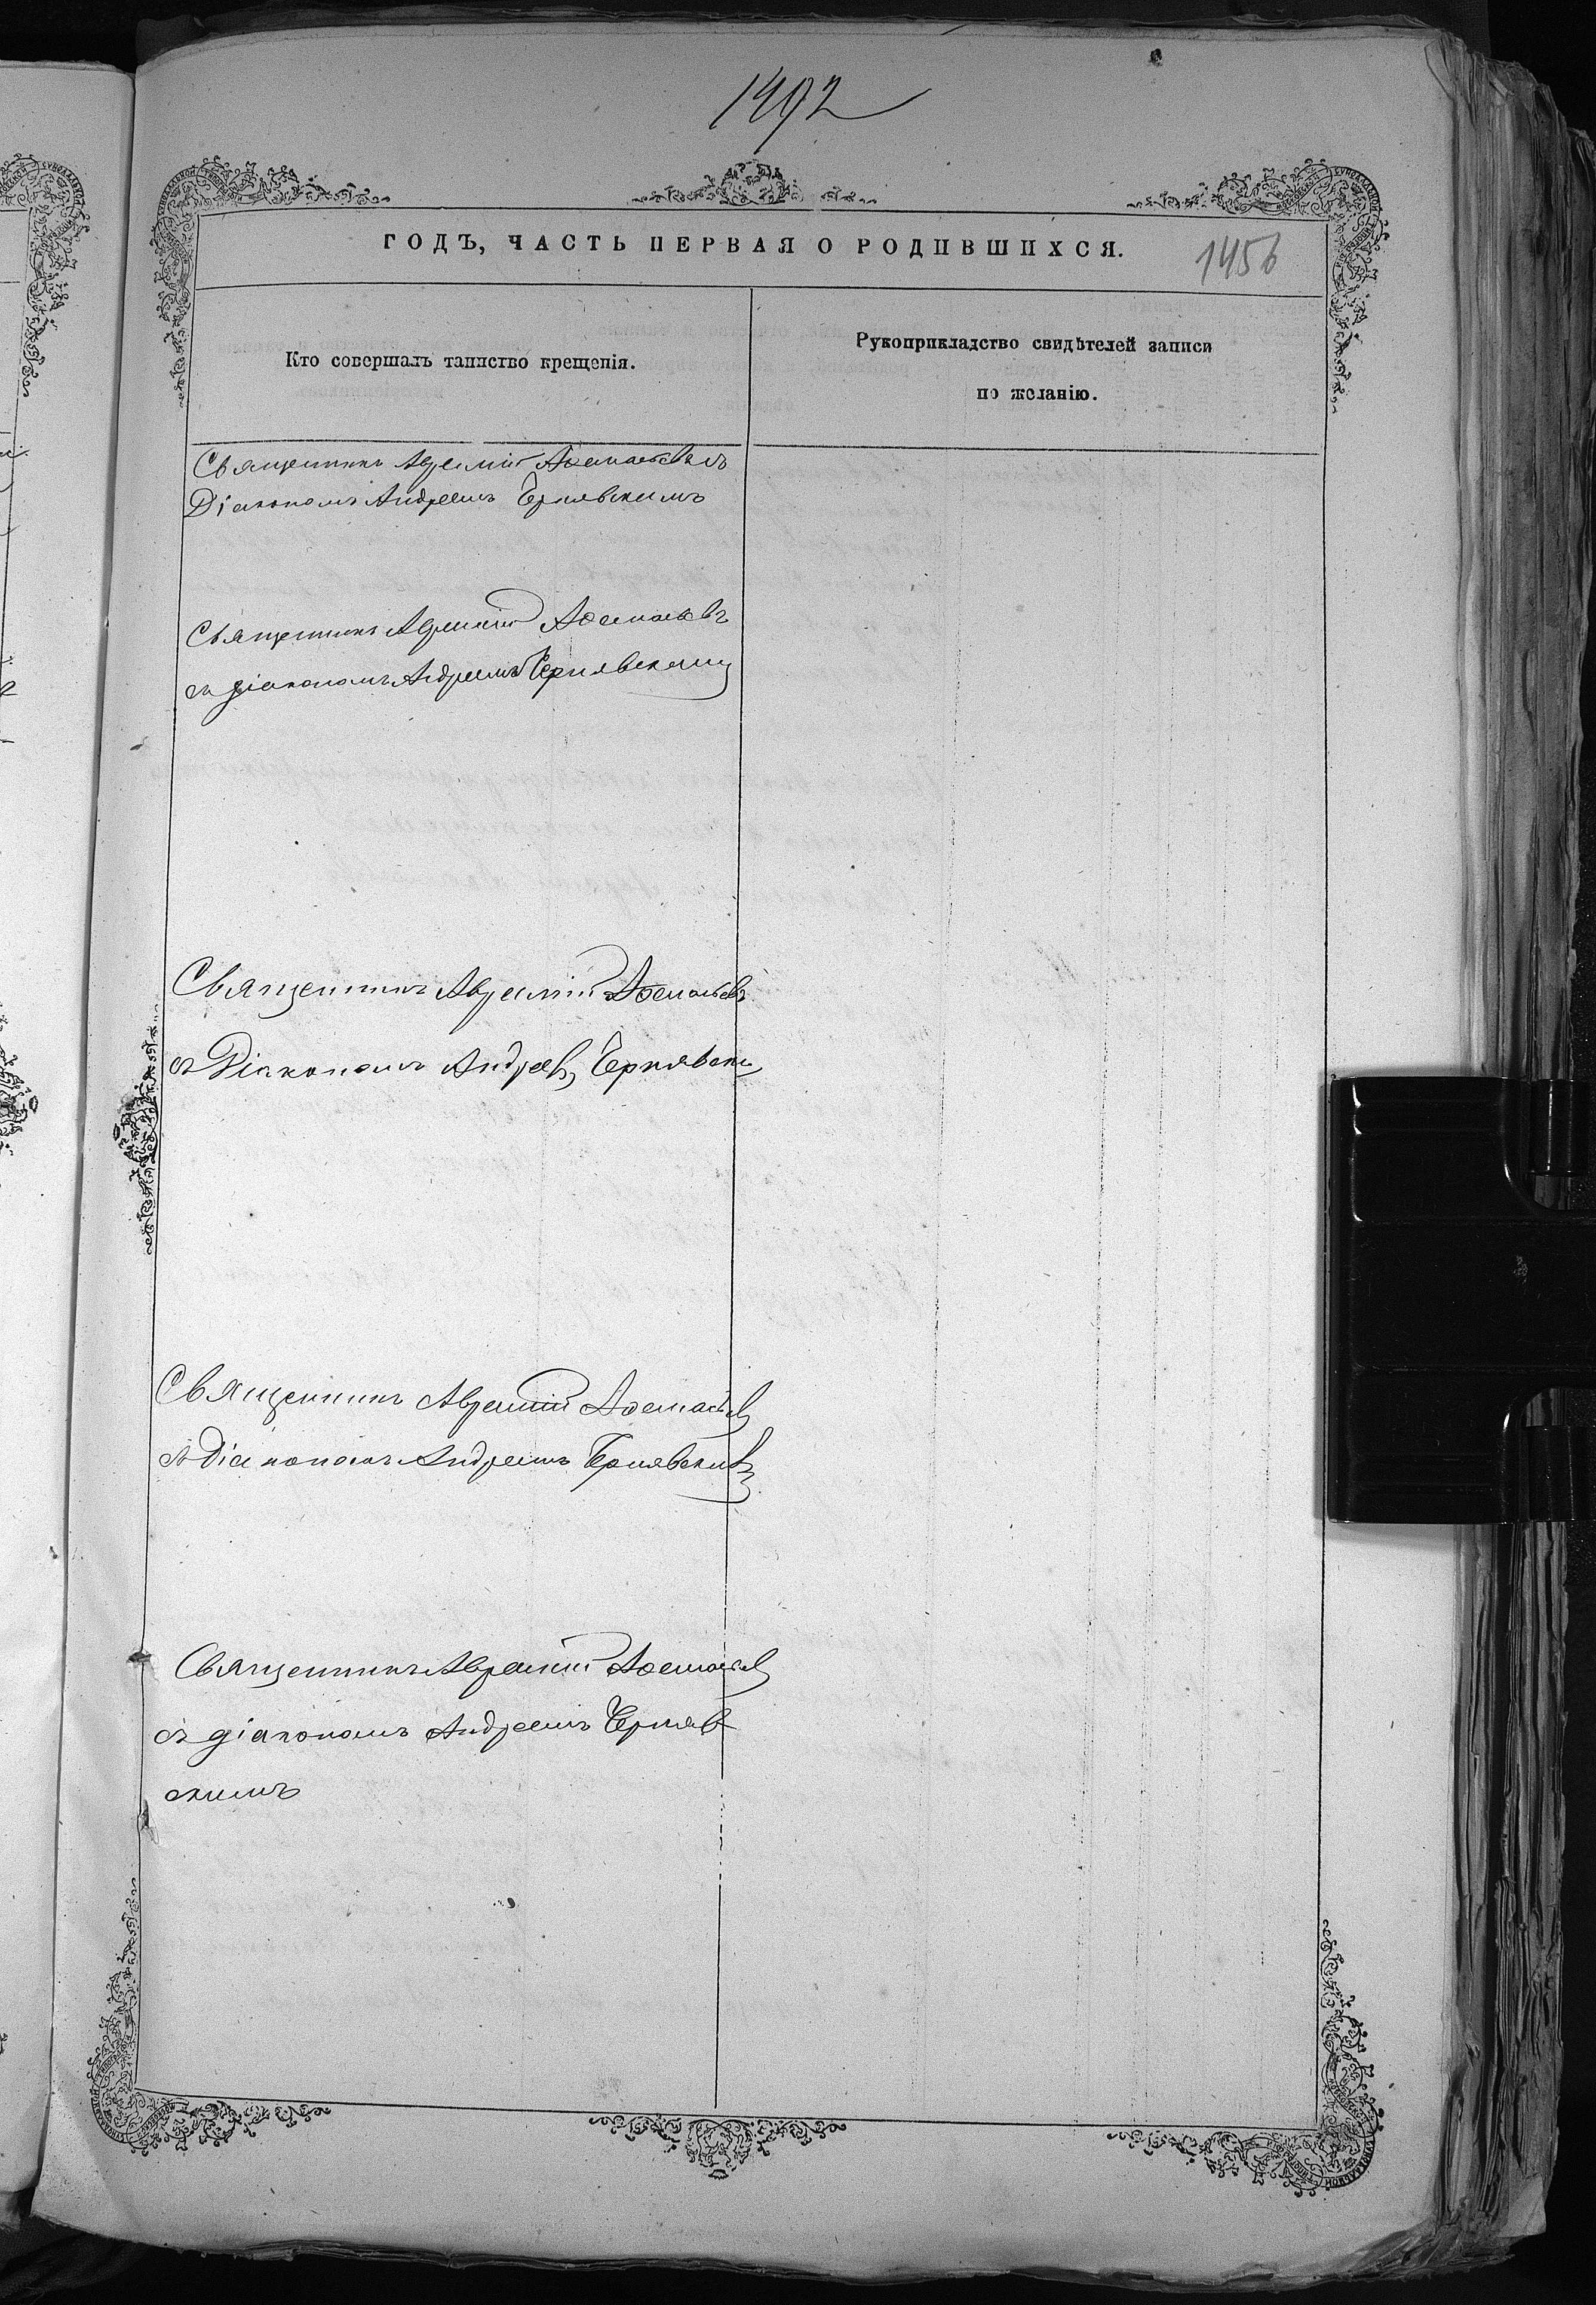 1492
ГОДЪ, ЧАСТЬ ПЕРВАЯ О РОДИВШИХСЯ.
1456
Кто совершалъ таинство крещенія.
Рукоприкладство свидѣтелей записи
по желанію.
Священникъ Аврамій
Діакономъ Андреемъ Чернявскимъ
Священникъ Аврамій
съ діакономъ Андреемъ Чернявскимъ
Священникъ Аврамій
съ Діакономъ Андреемъ Чернявски
Священникъ Аврамій
съ Діакономъ Андреемъ Чернявскимъ
Священникъ Аврамій
съ діакономъ Андреемъ Черняв
скимъ